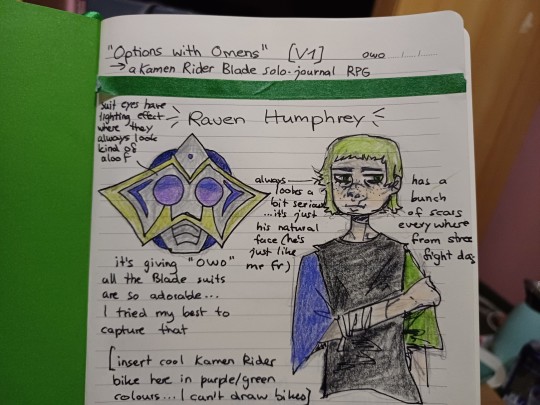 "Options with Omens" [V1] owo
→ a Kamen Rider Blade solo-journal RPG
suit eyes have
lighting effect
where they
always look
kind of
aloof
Raven Humphrey
always
looks a
bit serious
...it's just
his natural
face (he's
just like
me fr)
has a
bunch
of scars
everywhere
from street
fight days
it's giving "owo"
all the Blade suits
are so adorable...
I tried my best to
capture that
[insert cool Kamen Rider
bike here in purple/green
colours... I can't draw bikes]